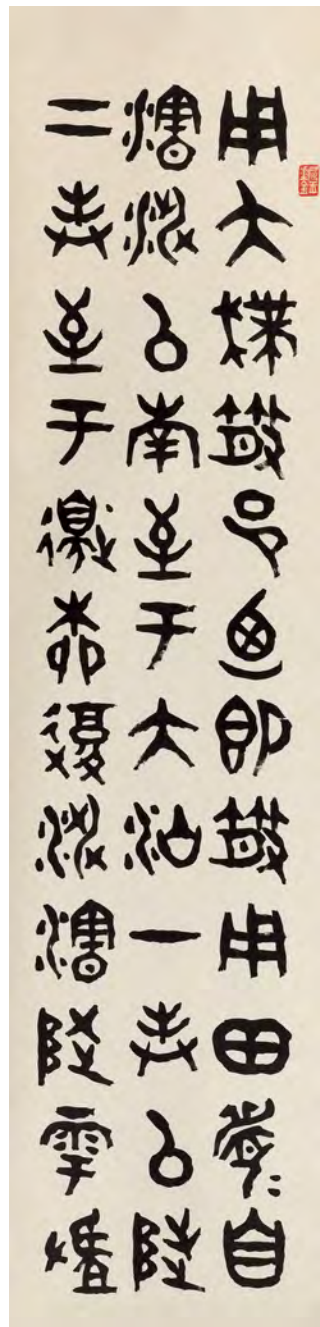 用夨㒒散邑迺即散用田眉自
瀗涉以南至于大沽一封以陟
二封至于邊柳復涉瀗陟雩